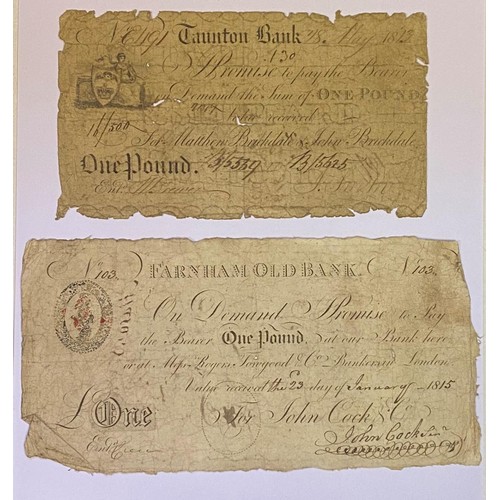 Taunton Bank 18. May 1822
I Promise to pay the Bearer
on Demand the Sum of ONE POUND
Value received
For Matthew Brickdale & John Brickdale
16/500
One Pound.
Entd.
No. 103. FARNHAM OLD BANK. No. 103.
On Demand I Promise to Pay
the Bearer One Pound, at our Bank here
or at Messrs Rogers Towgood & Co. Bankers in London
Value received the 23 day of January 1815
£One For John Cock & Co.
Entd. John Cock